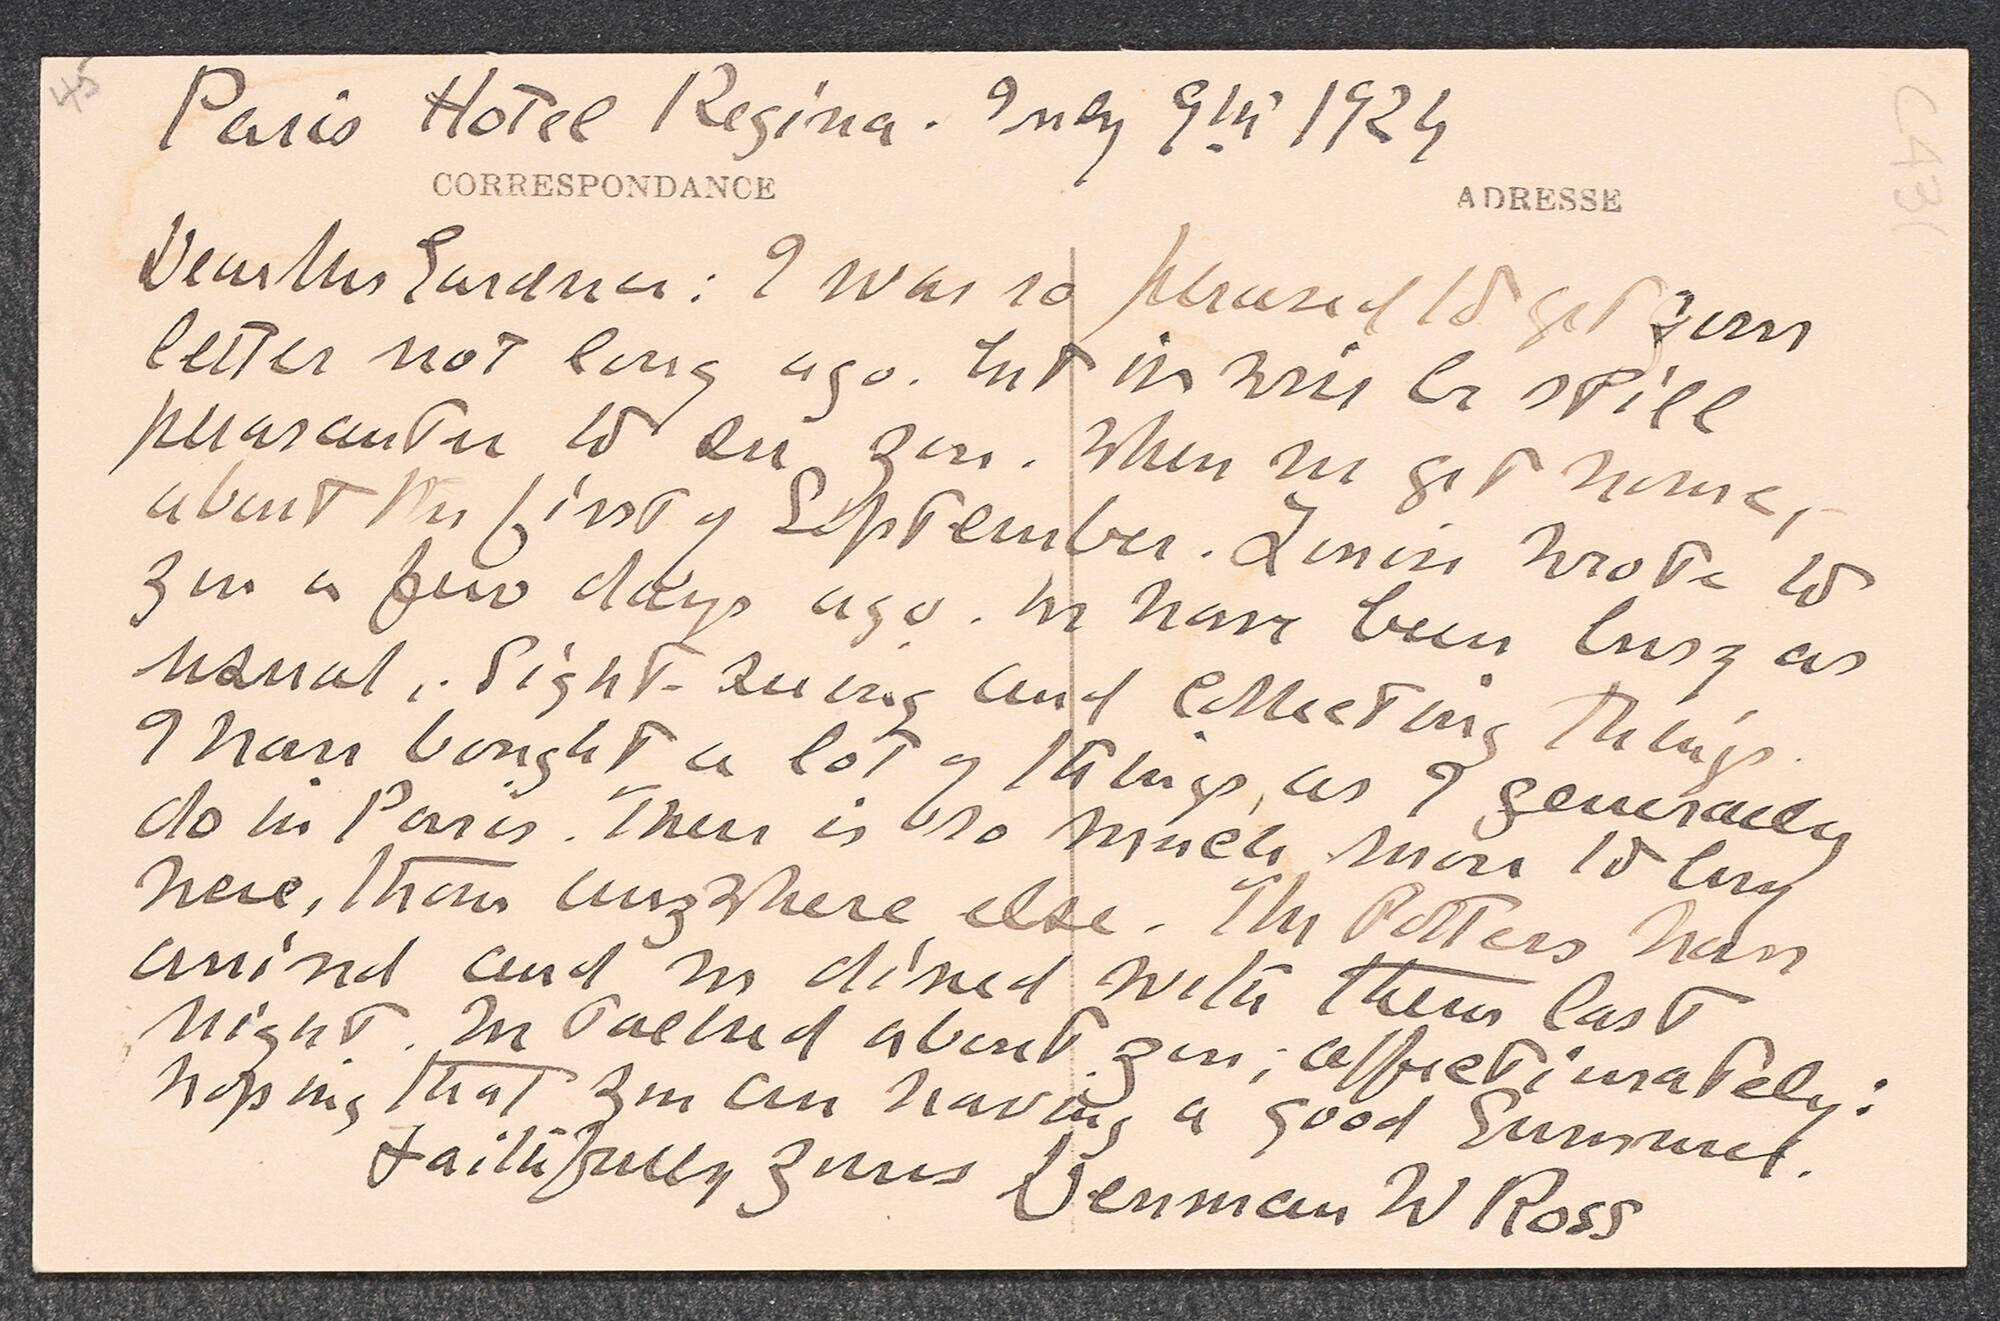 45
C43(
Paris Hotel Regina. July 9th 1924
CORRESPONDANCE
ADRESSE
Dear Mrs Gardner: I was so pleased to get your
letter not long ago. but it will be still
pleasanter to see you. When we get home,
about the first of September. Louise wrote to
you a few days ago. We have been busy as
usual, sight-seeing and collecting things.
I have bought a lot of things, as I generally
do in Paris. There is so much more to buy
here, than anywhere else. The Potters have
arrived and we dined with them last
night. We talked about you; affectionately:
hoping that you are having a good Summer.
Faithfully yours Denman W Ross